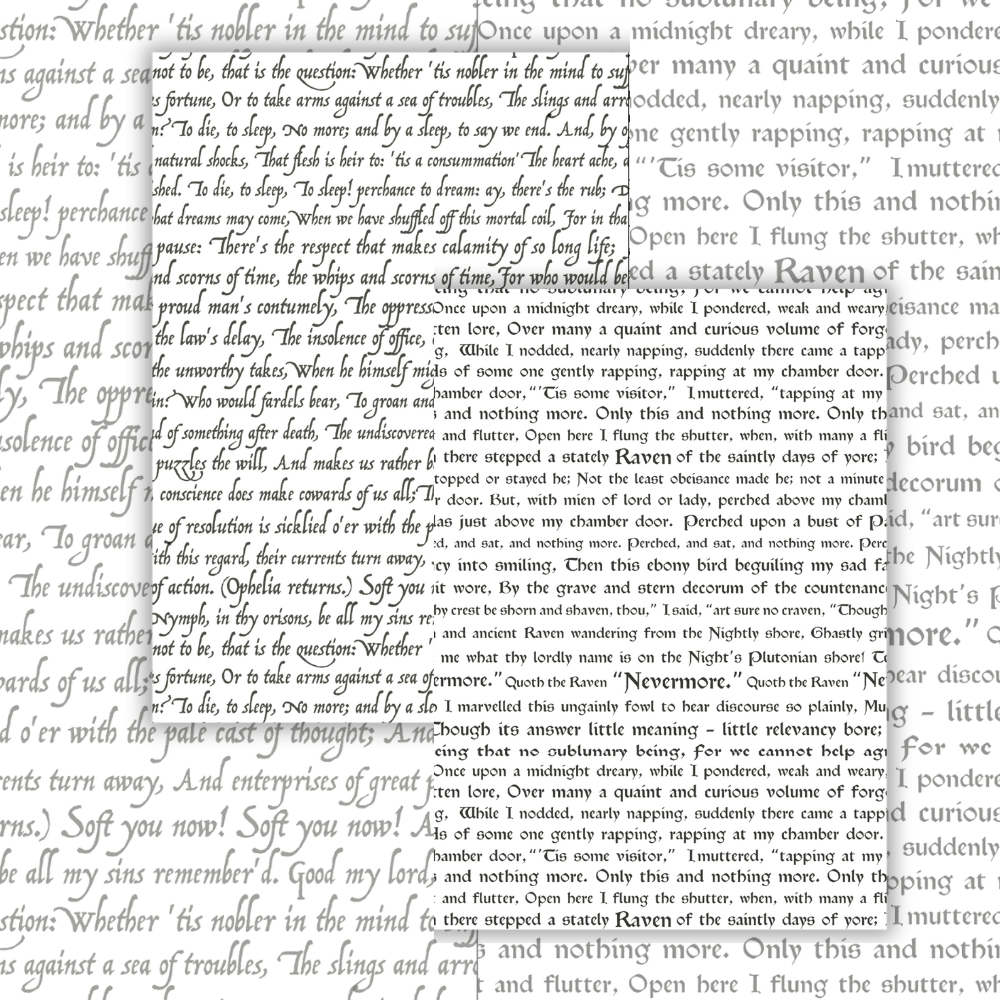 stion: Whether 'tis nobler in the mind to su
ns against a sea
more; and by a
is heir to: 'tis
sleep! perchance
en we have shuff
spect that mak
whips and scor
ly, The oppre
nsolence of offic
en he himself m
ear, To groan
The undiscove
makes us rather
wards of us all;
d o'er with the pale cast of thought; And
rents turn away, And enterprises of great p
rns.) Soft you now! Soft you now! A
be all my sins remember'd. Good my lord,
stion: Whether 'tis nobler in the mind to
ns against a sea of troubles, The slings and arro
not to be, that is the question: Whether 'tis nobler in the mind to suf
s fortune, Or to take arms against a sea of troubles, The slings and arr
n? To die, to sleep, No more; and by a sleep, to say we end. And, by o
natural shocks, That flesh is heir to: 'tis a consummation' The heart ache, a
shed. To die, to sleep, To sleep! perchance to dream: ay, there's the rub; D
hat dreams may come, When we have shuffled off this mortal coil, For in tha
pause: There's the respect that makes calamity of so long life;
nd scorns of time, the whips and scorns of time, For who would be
proud man's contumely, The oppress
the law's delay, The insolence of office,
the unworthy takes, When he himself mig
in? Who would fardels bear, To groan and
d of something after death, The undiscovered
puzzles the will, And makes us rather b
conscience does make cowards of us all; T
ue of resolution is sicklied o'er with the p
ith this regard, their currents turn away,
of action. (Ophelia returns.) Soft you
Nymph, in thy orisons, be all my sins re
not to be, that is the question: Whether '
s fortune, Or to take arms against a sea of
n? To die, to sleep, No more; and by a sle
cing that no sublunary being, For we cannot help agr
Once upon a midnight dreary, while I pondered, weak and weary,
ten lore, Over many a quaint and curious volume of forg
g, While I nodded, nearly napping, suddenly there came a tapp
ds of some one gently rapping, rapping at my chamber door.
hamber door, "'Tis some visitor," I muttered, "tapping at my
s and nothing more. Only this and nothing more. Only th
and flutter, Open here I flung the shutter, when, with many a fli
n there stepped a stately Raven of the saintly days of yore;
topped or stayed he; Not the least obeisance made he; not a minute
r door. But, with mien of lord or lady, perched above my chaml
las just above my chamber door. Perched upon a bust of Pa
d, and sat, and nothing more. Perched, and sat, and nothing more. Perc
cy into smiling, Then this ebony bird beguiling my sad fa
it wore, By the grave and stern decorum of the countenanc
hy crest be shorn and shaven, thou," I said, "art sure no craven, "Though
and ancient Raven wandering from the Nightly shore, Ghastly gri
me what thy lordly name is on the Night's Plutonian shore! Te
ermore." Quoth the Raven "Nevermore." Quoth the Raven "Ne
I marvelled this ungainly fowl to hear discourse so plainly, Mu
Though its answer little meaning - little relevancy bore;
cing that no sublunary being, For we cannot help agr
Once upon a midnight dreary, while I pondered, weak and weary,
ten lore, Over many a quaint and curious volume of forg
g, While I nodded, nearly napping, suddenly there came a tapp
ds of some one gently rapping, rapping at my chamber door.
hamber door, "'Tis some visitor," I muttered, "tapping at my
s and nothing more. Only this and nothing more. Only th
and flutter, Open here I flung the shutter, when, with many a fli
n there stepped a stately Raven of the saintly days of yore;
cing that no sublunary being, For we
Once upon a midnight dreary, while I pondere
ver many a quaint and curious
nodded, nearly napping, suddenly
ne gently rapping, rapping at
"'Tis some visitor," I muttered
ng more. Only this and nothin
Open here I flung the shutter, wh
ed a stately Raven of the sain
eisance ma
ady, perch
Perched u
and sat, an
y bird beg
decorum o
ad, "art sure
the Nightly
Night's P
more." Q
hear discou
g - little
For we
I pondere
d curious
suddenly
pping at
I muttered
s and nothing more. Only this and nothin
t and flutter, Open here I flung the shutter, wh